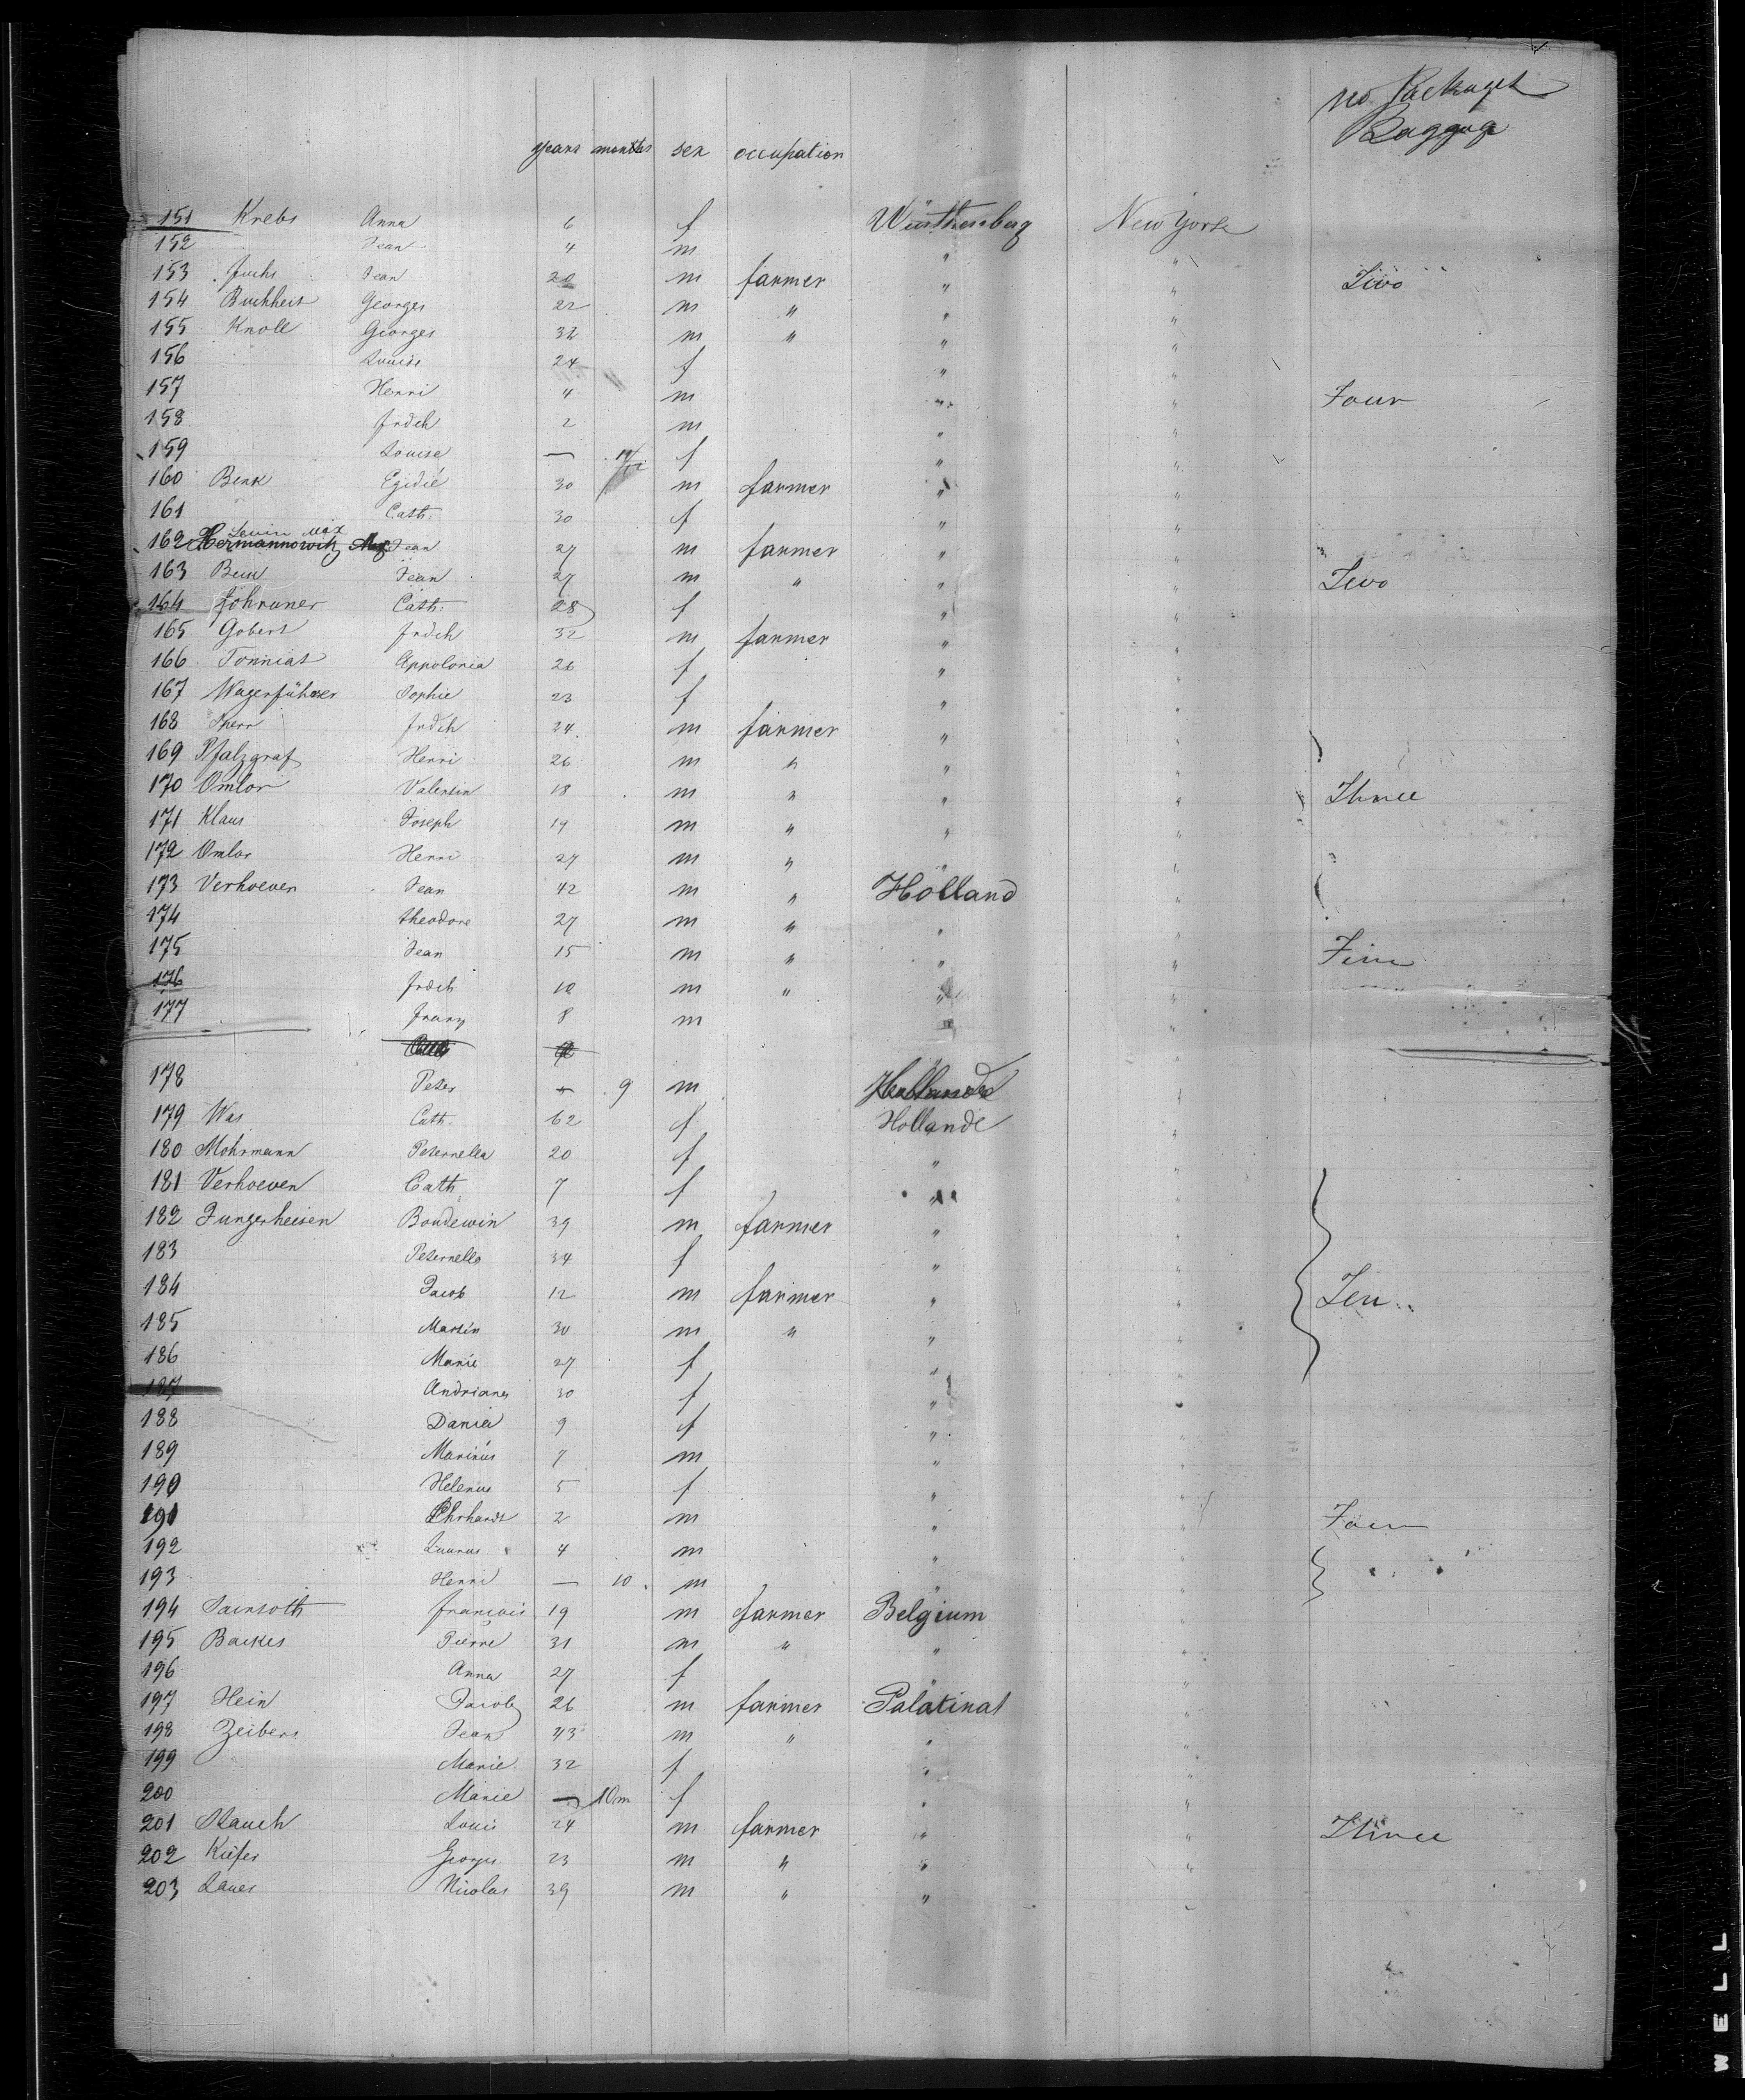 No. Packages
Baggage
years months sex occupation
151 Krebs Anna 6 f Würthenberg New York
152 Jean 4 m " "
153 Fuchs Jean 22 m farmer " " Two
154 Buchheit Georges 22 m " " "
155 Knoll Georges 32 m " " "
156 Louise 24 f " "
157 Henri 4 m " " Four
158 frdch 2 m " "
159 Louise — f " "
160 Benk Egidie 30 m farmer " "
161 Cath. 30 f " "
162 Hermannowitz Levin Max Jean 27 m farmer " "
163 Jean 27 m " " " Two
164 Cath. 28 f " "
165 Gobert frdch 32 m farmer " "
166 Tonniat Appolonia 26 f " "
167 Wagenführer Sophie 23 f " "
168 Sherr frdch 24 m farmer " "
169 Pfalzgraf Henri 26 m " " "
170 Omlor Valentin 18 m " " " Three
171 Klaus Joseph 19 m " " "
172 Omlor Henri 27 m " " "
173 Verhoeven Jean 42 m " Holland "
174 theodore 27 m " " "
175 Jean 15 m " " "
176 frdch 10 m " " "
177 franz 8 m " "
178 Peter — 9 m "
179 Was Cath. 62 f Hollande "
180 Mohrmann Peternella 20 f " "
181 Verhoeven Cath. 7 f " "
182 Jungerheisen Boudewin 39 m farmer " "
183 Peternella 34 f " "
184 Jacob 12 m farmer " " Ten
185 Martin 30 m " " "
186 Marie 27 f " "
187 Andriana 30 f " "
188 Daniel 9 f " "
189 Marinus 7 m " "
190 Helenus 5 f " "
191 Ehrhardt 2 m " " Four
192 4 m " "
193 Henri — 10 m " "
194 Sainsoth francois 19 m farmer Belgium "
195 Backes Pierre 31 m " " "
196 Anna 27 f " "
197 Hein Jacob 26 m farmer Palatinat "
198 Zeibert Jean 43 m " " "
199 Marie 32 f " "
200 Marie — 10m f " "
201 Stauch Louis 24 m farmer " " Three
202 Kiefer Georges 23 m " " "
203 Lauer Nicolas 39 m " " "
WELL